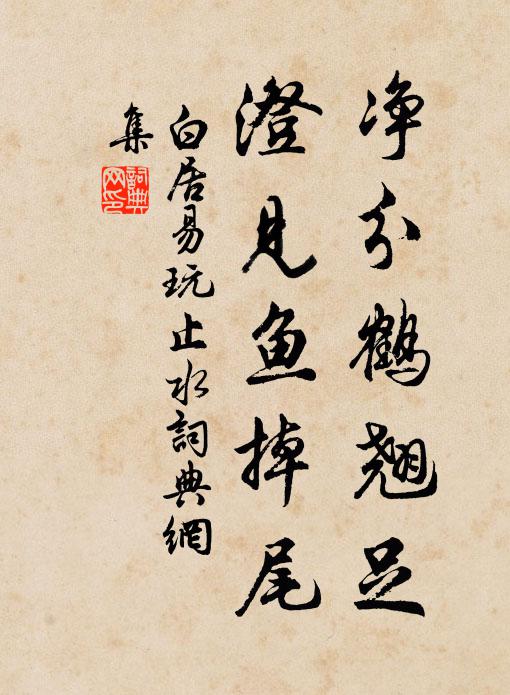 净分鹤翘足
澄见鱼掉尾
白居易玩止水詞典網
集
詞典
网印